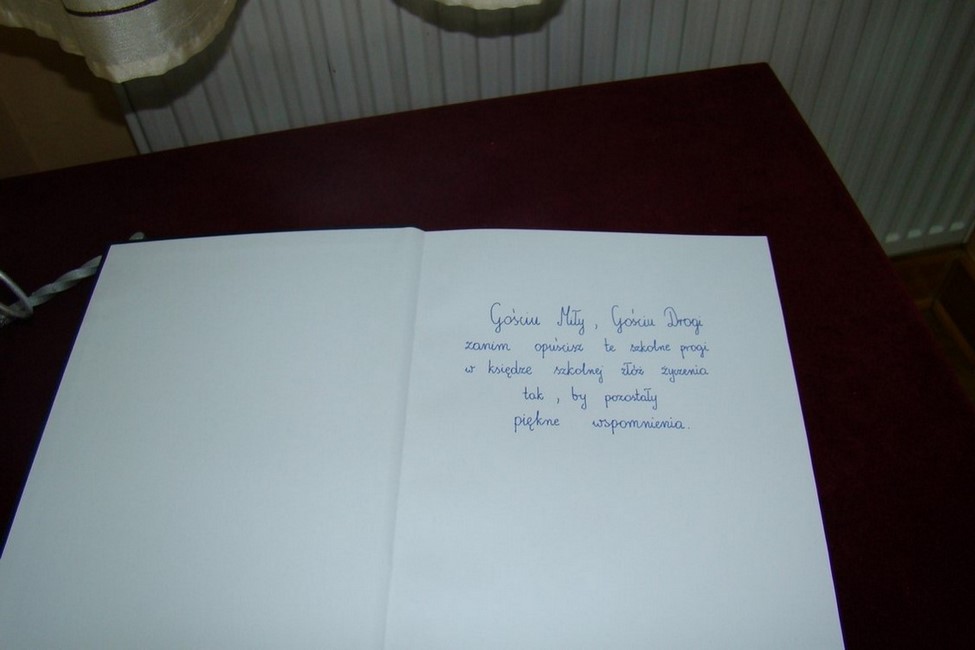 Gościu Miły, Gościu Drogi
zanim opuścisz te szkolne progi
w księdze szkolnej złóż życzenia
tak, by pozostały
piękne wspomnienia.